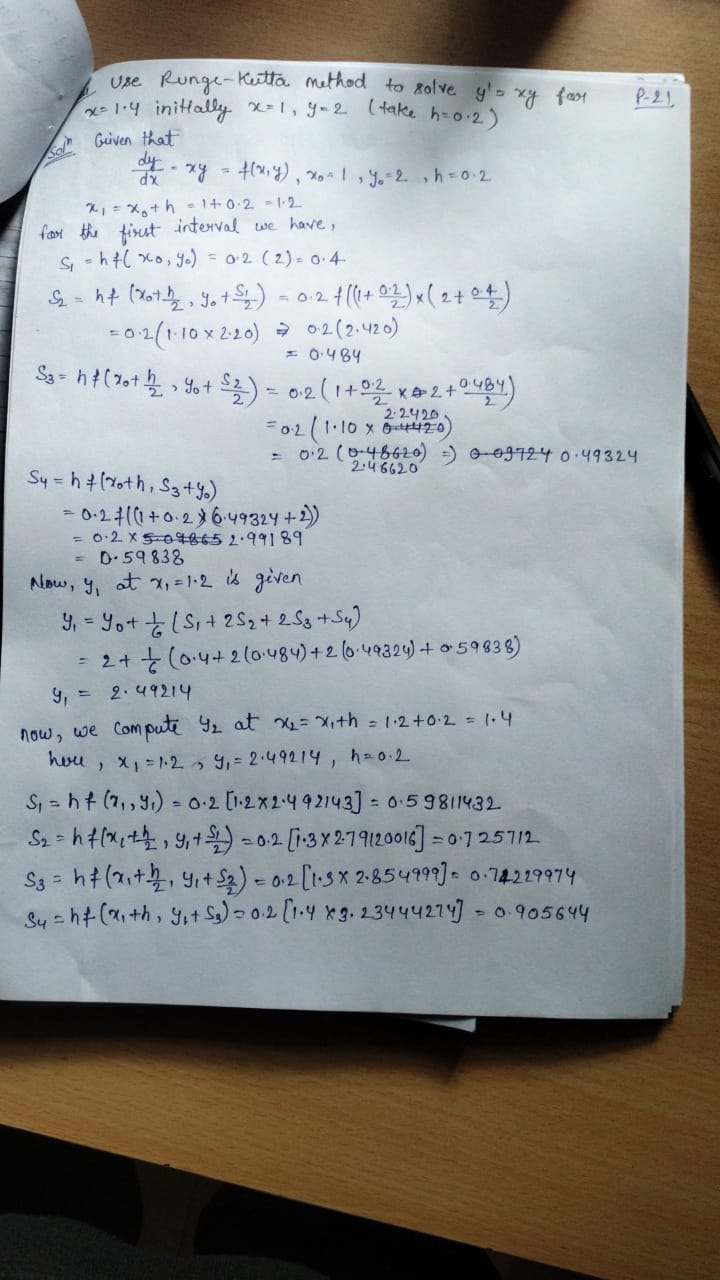 Use Runge-Kutta method to solve y' = xy for P-21
x=1.4 initially x=1, y=2 (take h=0.2)
Solⁿ Given that
dy/dx = xy = f(x,y), x₀=1, y₀=2, h=0.2
x₁ = x₀+h = 1+0.2 = 1.2
for the first interval we have,
S₁ = hf(x₀, y₀) = 0.2 (2) = 0.4
S₂ = hf(x₀+h/2, y₀+S₁/2) = 0.2 f((1+0.2/2)×(2+0.4/2)
= 0.2(1.10 × 2.20) ⇒ 0.2(2.420)
= 0.484
S₃ = hf(x₀+h/2, y₀+S₂/2) = 0.2 (1+0.2/2 × 2+0.484/2)
= 0.2 (1.10 × 2.2420)
= 0.2 (2.46620) ⇒ 0.49324
S₄ = hf(x₀+h, S₃+y₀)
= 0.2 f((1+0.2)(0.49324+2))
= 0.2 × 2.99189
= 0.59838
Now, y₁ at x₁=1.2 is given
y₁ = y₀+1/6 (S₁+2S₂+2S₃+S₄)
= 2+1/6 (0.4+2(0.484)+2(0.49324)+0.59838)
y₁ = 2.49214
now, we compute y₂ at x₂=x₁+h = 1.2+0.2 = 1.4
here, x₁=1.2, y₁=2.49214, h=0.2
S₁ = hf(x₁,y₁) = 0.2 [1.2×2.492143] = 0.59811432
S₂ = hf(x₁+h/2, y₁+S₁/2) = 0.2 [1.3×2.79120016] = 0.725712
S₃ = hf(x₁+h/2, y₁+S₂/2) = 0.2 [1.3×2.854999] = 0.74229974
S₄ = hf(x₁+h, y₁+S₃) = 0.2 [1.4×3.23444274] = 0.905644